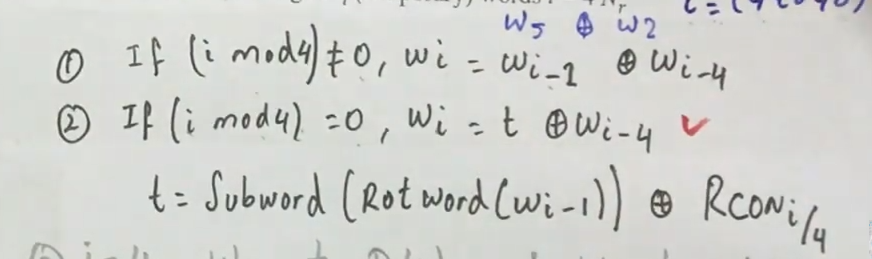 W5 ⊕ W2
① If (i mod4) ≠ 0, wi = wi-1 ⊕ wi-4
② If (i mod4) = 0, wi = t ⊕ wi-4 ✓
t = Subword (Rot word (wi-1)) ⊕ RCONi/4